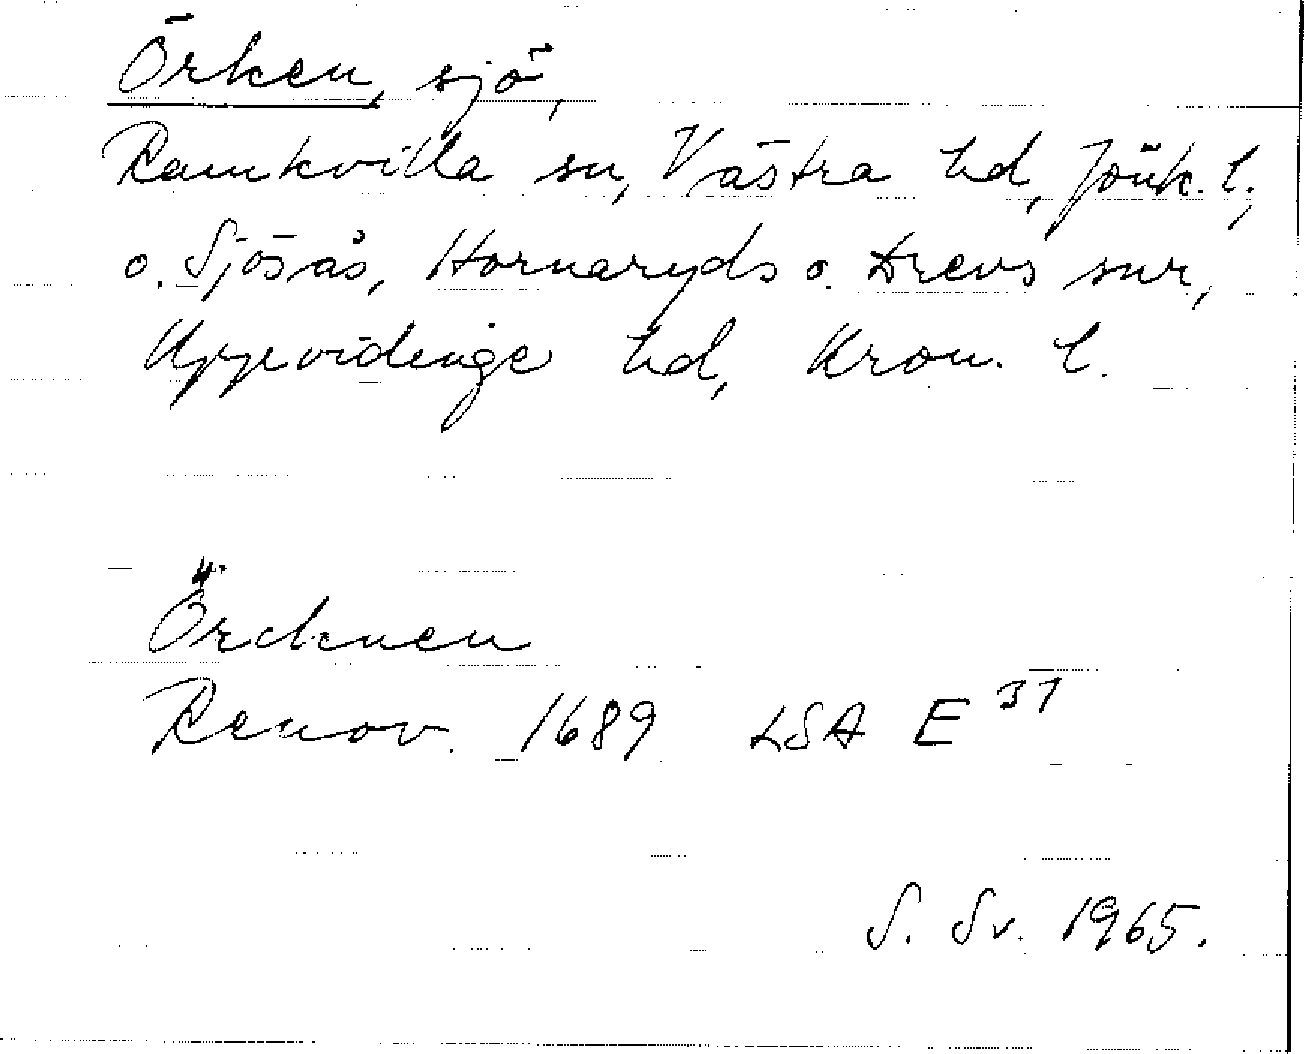 Örken, sjö,
Ramkvilla sn, Västra hd, Jönk. l.,
o. Sjösås, Hornaryds o. Drevs snr,
Uppvidinge hd, Kron. l.
Örcknen
Renov. 1689 LSA E 31
S. Sv. 1965.